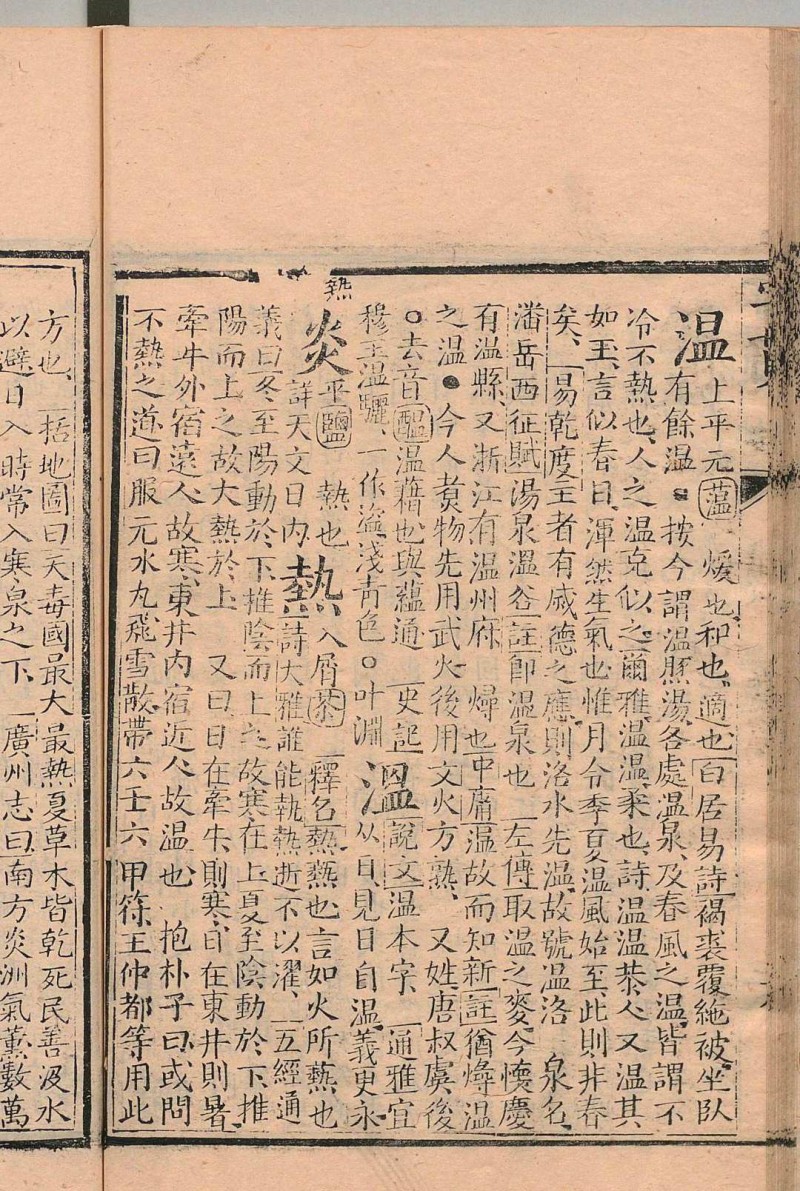 温上平元蕰煖也和也適也白居易詩褐裘覆絁被坐臥
有餘温按今謂温㬈湯各處温泉及春風之温皆謂不
冷不熱也人之温克似之爾雅温温柔也詩温温恭人又温其
如玉言似春日渾然生氣也惟月令季夏温風始至此則非春
矣易乾度王者有咸德之應則洛水先温故號温洛 泉名
潘岳西征賦湯泉温谷註卽温泉也 左傳取温之麥今懷慶
有温縣又浙江有温州府 燖也中庸温故而知新註猶燖温
之温 今人煑物先用武火後用文火方熟 又姓唐叔虞後
去音醖温藉也與蘊通 史記 通雅宜
穆王温驪一作盜淺青色叶淵 温說文温本字 从日見日自温義更永
熱
炎平鹽 熱也
詳天文日內 熱入屑茶 釋名熱爇也言如火所爇也
詩大雅誰能執熱逝不以濯 五經通
義曰冬至陽動於下推陰而上之故寒在上夏至陰動於下推
陽而上之故大熱於上 又曰日在牽牛則寒日在東井則暑
牽牛外宿遠人故寒東井內宿近人故温也 抱朴子曰或問
不熱之道曰服元水丸飛雪散帶六壬六甲符王仲都等用此
方也 括地圖曰天毒國最大最熱夏草木皆乾死民善汲水
以避日入時常入寒泉之下 廣州志曰南方炎洲氣薰數萬